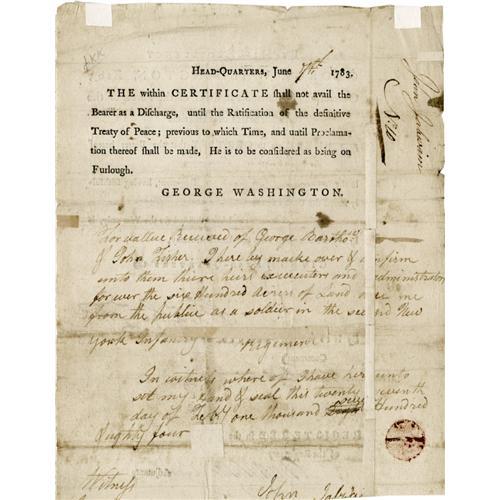 HEAD-QUARTERS, June 7th 1783.
THE within CERTIFICATE shall not avail the
Bearer as a Discharge, until the Ratification of the definitive
Treaty of Peace; previous to which Time, and until Proclama-
tion thereof shall be made, He is to be considered as being on
Furlough.
GEORGE WASHINGTON.
For vallue Received of George Barthow
& John Fisher. I here by make over & confirm
unto them there heirs executers and administrators
for ever the six Hundred Acres of Land due me
from the publick as a soldier in the second New
york Infantry Regement
In witness where of I have here unto
set my hand & seal this twenty seventh
day of Feby one thousand seven Hundred
& eighty four
Witness
John
No 10